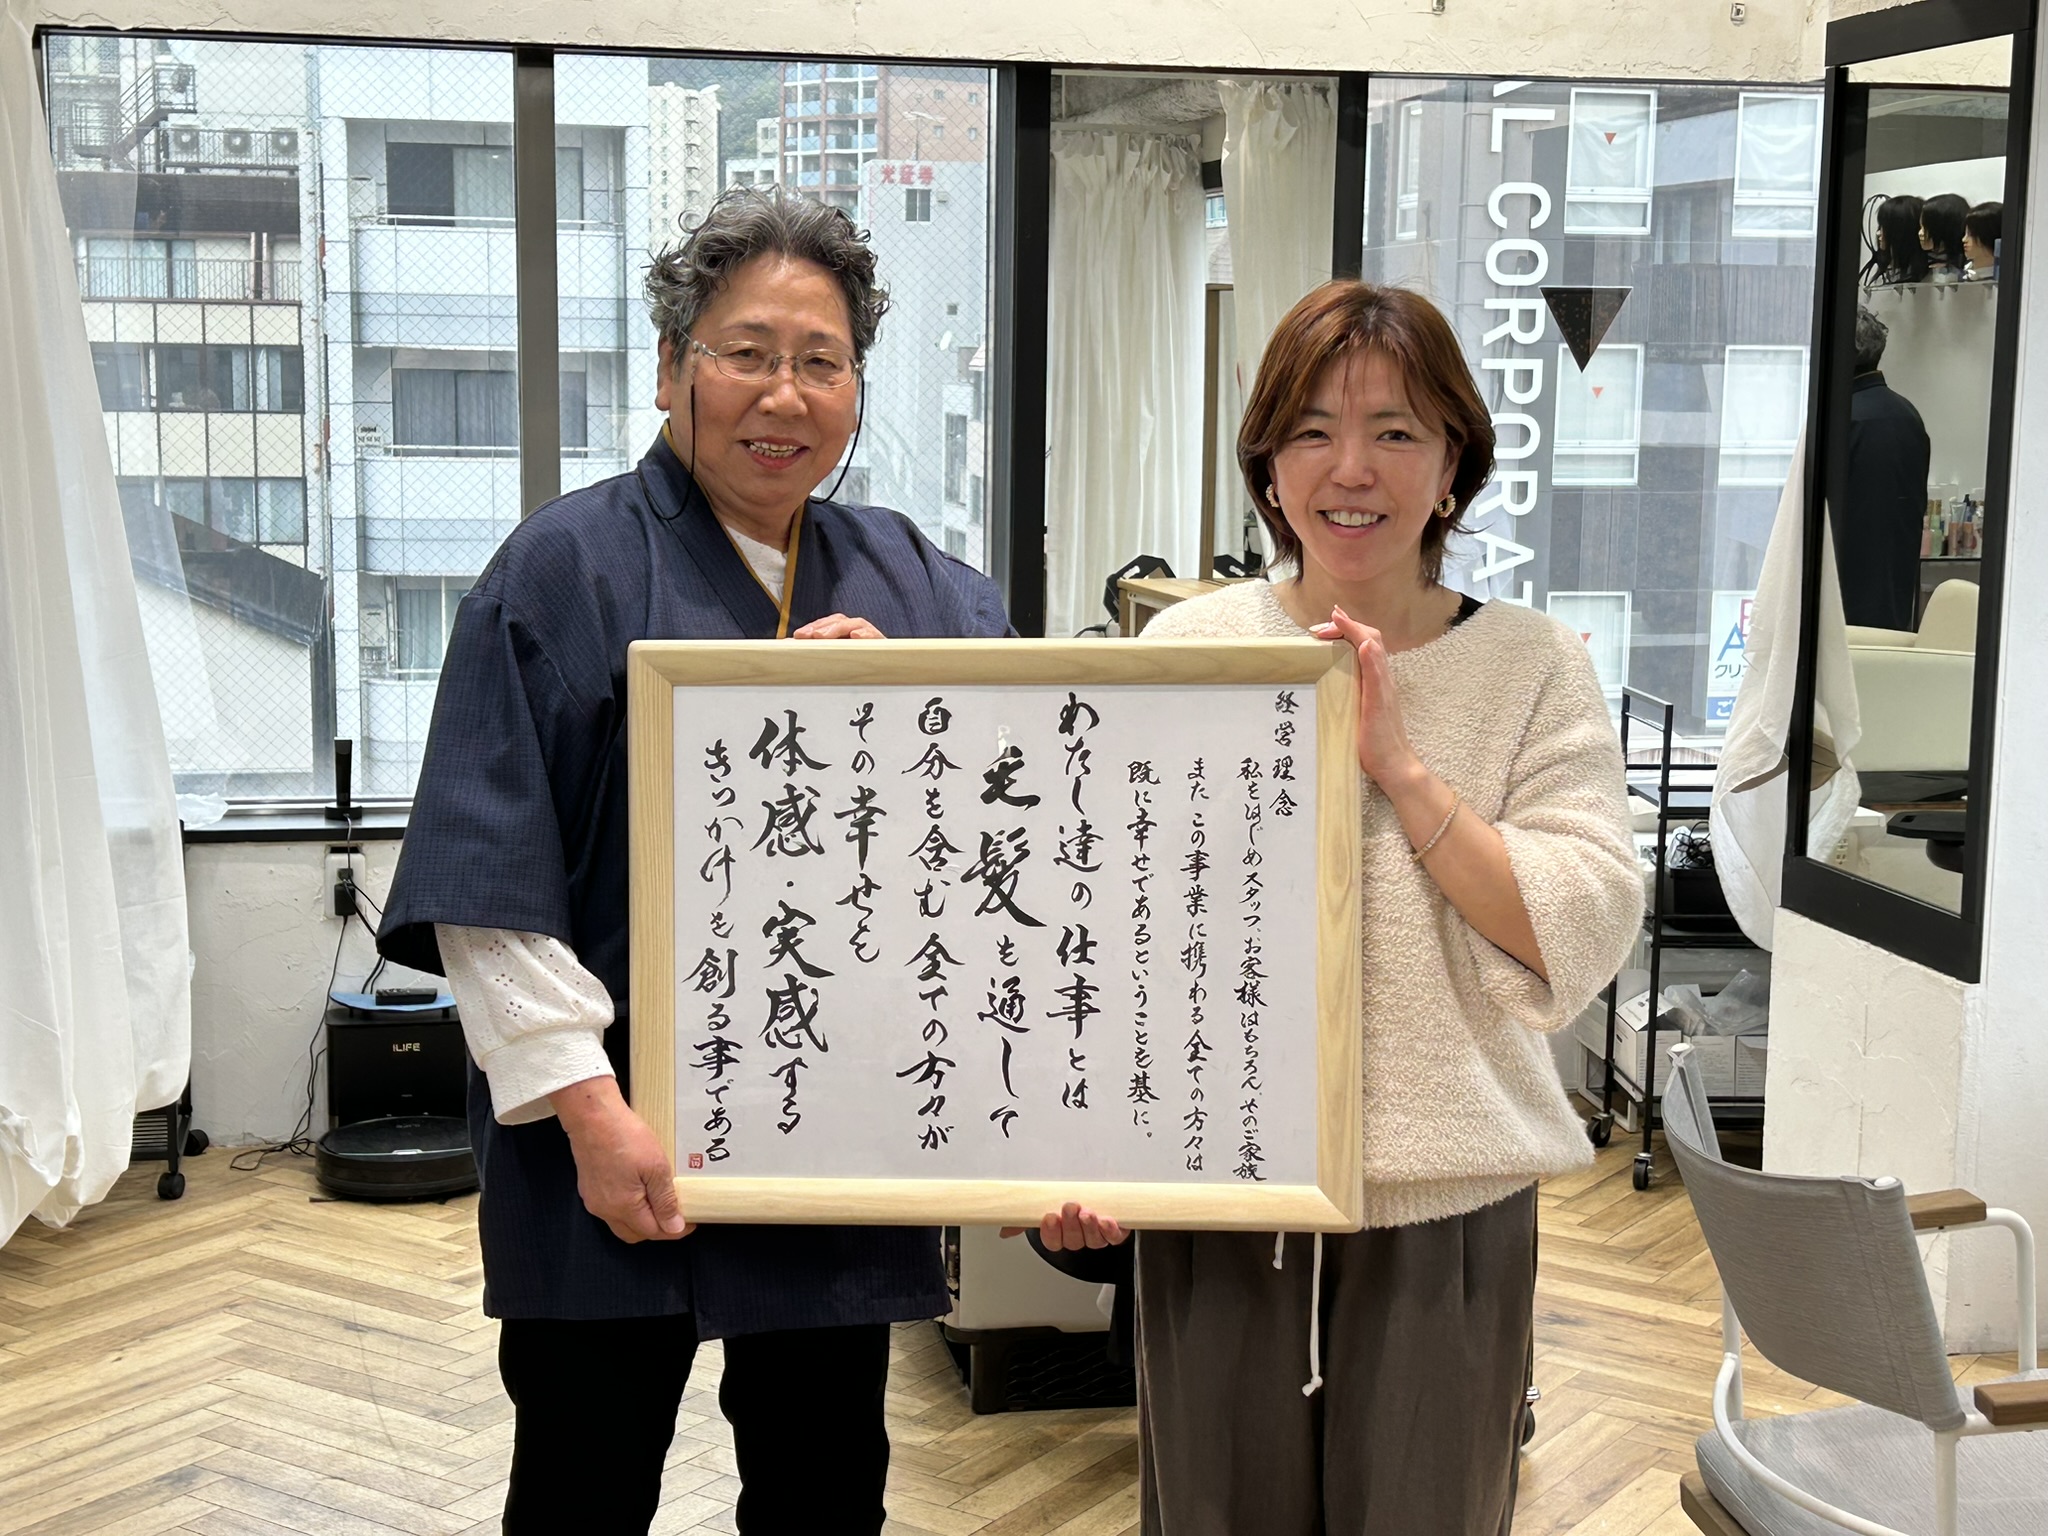 経営理念
私をはじめスタッフ、お客様はもちろん、そのご家族
また この事業に携わる全ての方々は
既に幸せであるということを基に。
わたし達の仕事とは
毛髪を通して
自分を含む全ての方々が
その幸せを
体感・実感する
きっかけを創る事である
AL CORPORAT
ILIFE